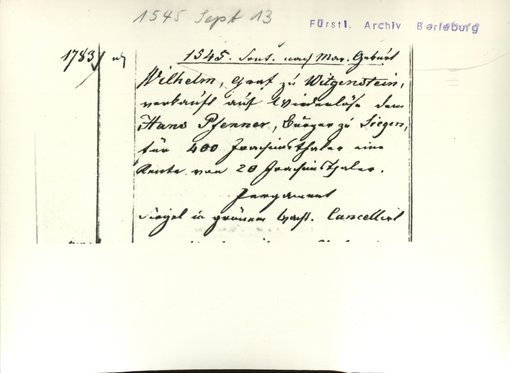 1545 Sept 13
Fürstl. Archiv Berleburg
1783
1545. Sont. nach Mar. Geburt
Wilhelm, Graf zu Witgenstein,
verkauft auf Wiederlöse dem
Hans Pfenner, Bürger zu Siegen,
für 400 Joachimsthaler eine
Rente von 20 Joachimsthaler.
Pergament
Siegel in grünem Wachs. Cancelliert